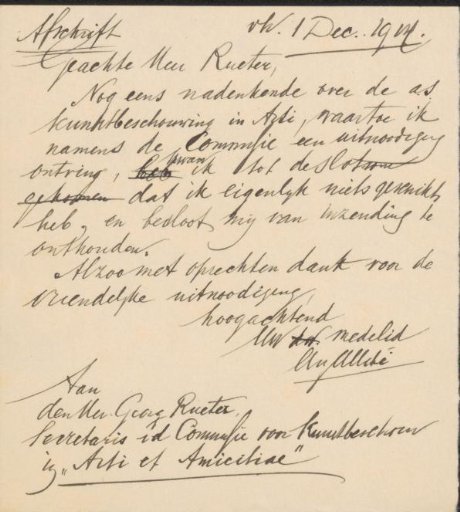 Afschrift
1 Dec. 1914.
Geachte Heer Rueter,
Nog eens nadenkende over de as
kunstbeschouwing in Arti, waartoe ik
namens de Commissie een uitnoodiging
ontving, kwam ik tot de slotsom
gekomen dat ik eigenlijk niets geschikts
heb, en besloot mij van inzending te
onthouden.
Alzoo met oprechten dank voor de
vriendelijke uitnoodiging,
hoogachtend
Uw medelid
Aan
den Heer Georg Rueter,
Secretaris i/d Commissie voor Kunstbeschouw
in „Arti et Amicitiae"